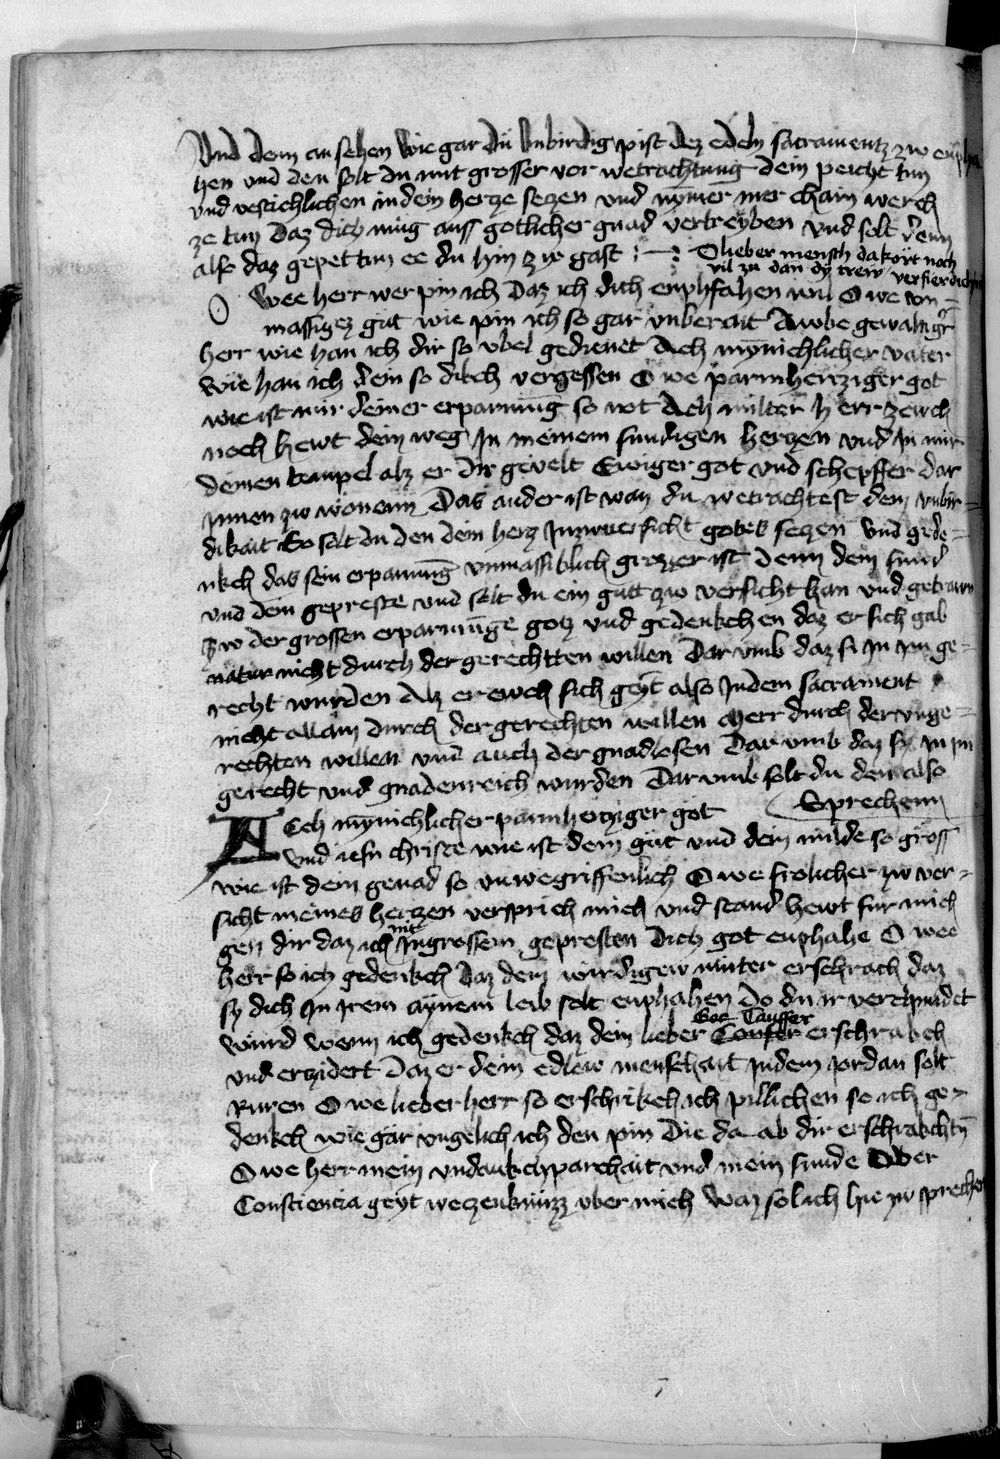 Vnd dem an sehen Wie gar du Vnbirdig pist dez edeln sacramentz zw enpha
hen vnd den solt du mit grosser vor wetrachtung dein peicht tun
vnd vestichlichen in dein hertze seczen vnd nymer mer chain werch
ze tun Daz dich mug auss gotlicher gnad vertreyben vnd solt denn
also daz gepet tun ee du hin zw gast :—:
O lieber mensch da kort noch
vil zu dan dy trew
O wee herr wer pin ich Daz ich dich enphfahen wil O we von
massigez gut wie pin ich so gar vnberait Awbe gewaltiger
herr wie han ich dir so vbel gedienet Ach mynichlicher vater
Wie han ich dein so dikch vergessen O we parmhertziger got
wie ist mir deiner erparmung so not Ach milter herr zewch
noch hewt dein weg In meinem sundigen hertzen vnd in mir
deinen tempel alz er dir gevelt Ewiger got vnd schepffer dar
Innen zw wonenn Das ander ist wan du wetrachtest dein vnbir-
dikait So solt du den dein hertz In zwuersicht gotes seczen vnd gede-
nkch das sein erpamung vnmassiklich grozzer ist denn dein sund
vnd dein gepreste vnd solt du ein gute zw versicht han vnd getrawn
zw der grossen erparmunge gotz vnd gedenkchen daz er sich gab
natur nicht durch der gerechtten willen Dar vmb daz si in im ge-
recht wurden Alz er ewch sich geyt also In dem sacrament
nicht allain durch der gerechten willen Merr durch der vnge-
rechten willen vnd auch der gnadlosen Dar vmb daz sy in im
gerecht vnd gnadenreich wurden Dar vmb solt du den also
Sprechenn
Ach mynichlicher parmhertziger got
Vnd iesu christe wie ist dein gut vnd dein milde so gross
wie ist dein genad so vnwegriffenlich O we frolicher zw ver-
sicht meines hertzen versprich mich vnd stand hewt fur mich
gen dir daz ich mit In grossem gepresten Dich got enphahe O wee
herr so ich gedenkch Daz dein wirdigew muter erschrach daz
sy dich In irem aynem leib solt enphahen Do du ir verchundet
wurd wenn ich gedenkch daz dein lieber Taufer erschrakch
Got Tauffer
vnd erczidert Daz er dein edlew menschait In dem Jordan solt
Ruren O we lieber herr so erschrikch ich pillichen so ich ge-
denkch wie gar vngelich ich den pin Die da ab dir erschrakchtn
O we herr mein vndankchparchait vnd mein sunde Aber
Consciencia geyt weczenknuzz vber mich Waz sol ich hie zw sprechen